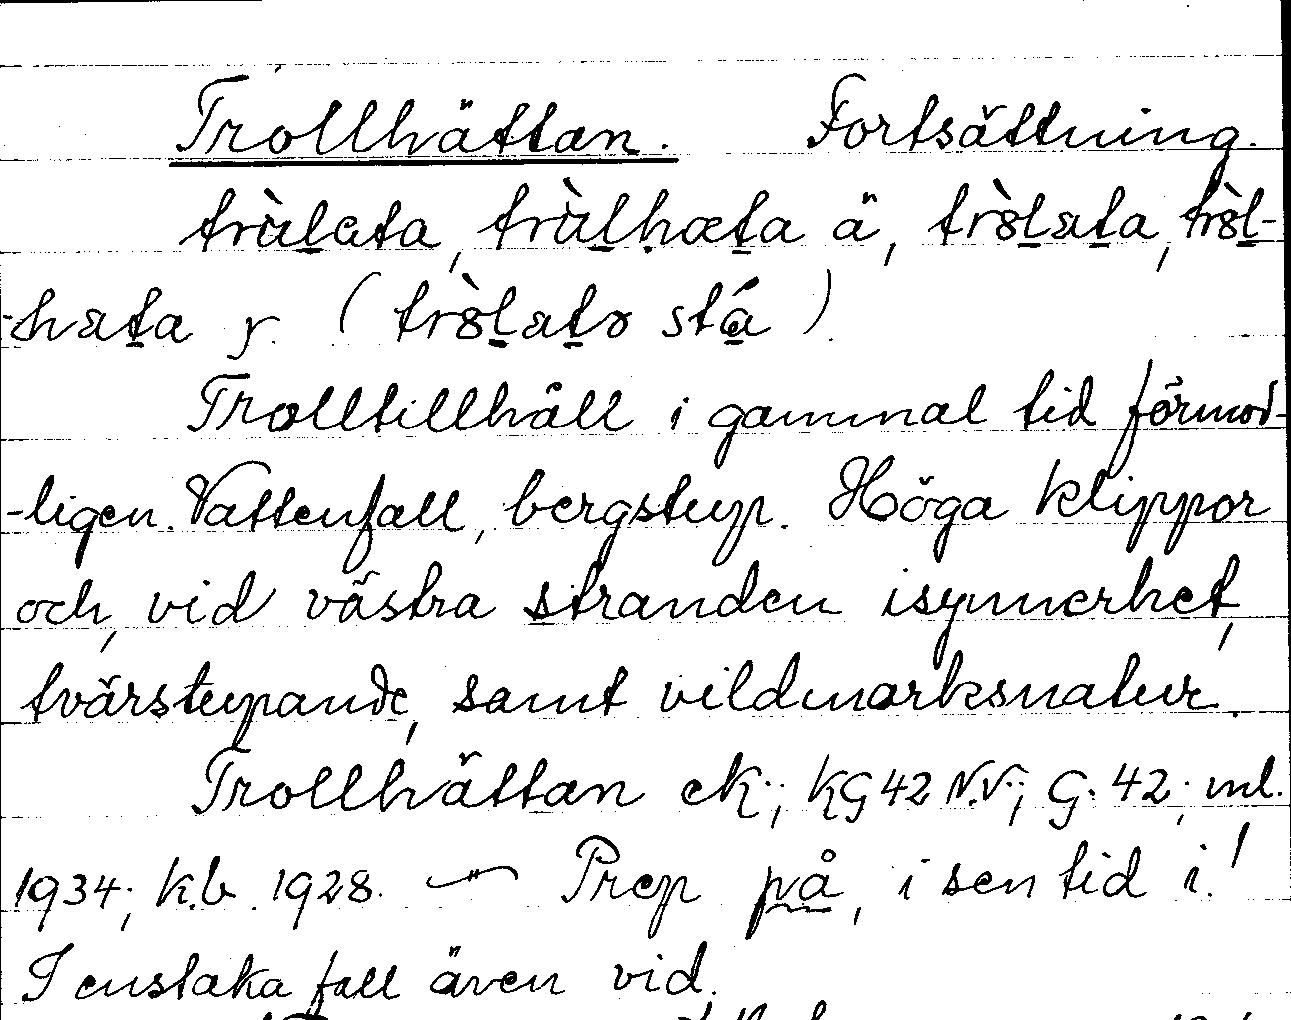 Trollhättan. Fortsättning.
trùlata, trùlhæta ä, tròlata, tròl-
-hata y. (tròlato stá).
Trolltillhåll i gammal tid förmod-
-ligen. Vattenfall, bergstup. Höga klippor
och, vid västra stranden isynnerhet,
tvärstupande, samt vildmarksnatur.
Trollhättan ek; KG 42 N.V; G. 42; ml.
1934; k.b. 1928. — Prep på, i sen tid i!
I enstaka fall även vid.